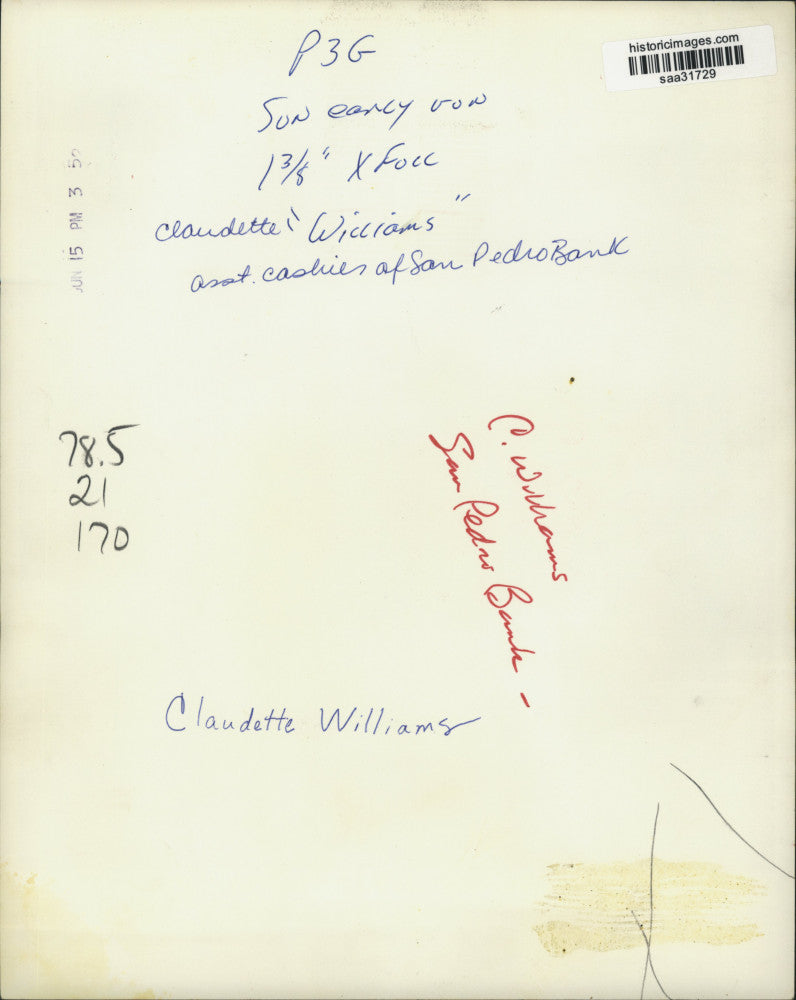 P3G
historicimages.com
saa31729
Sun early
1 3/8" X Full
JUN 15 PM 3 52
Claudette "Williams"
asst. cashier of San Pedro Bank
78.5
21
170
C. Williams
San Pedro Bank -
Claudette Williams